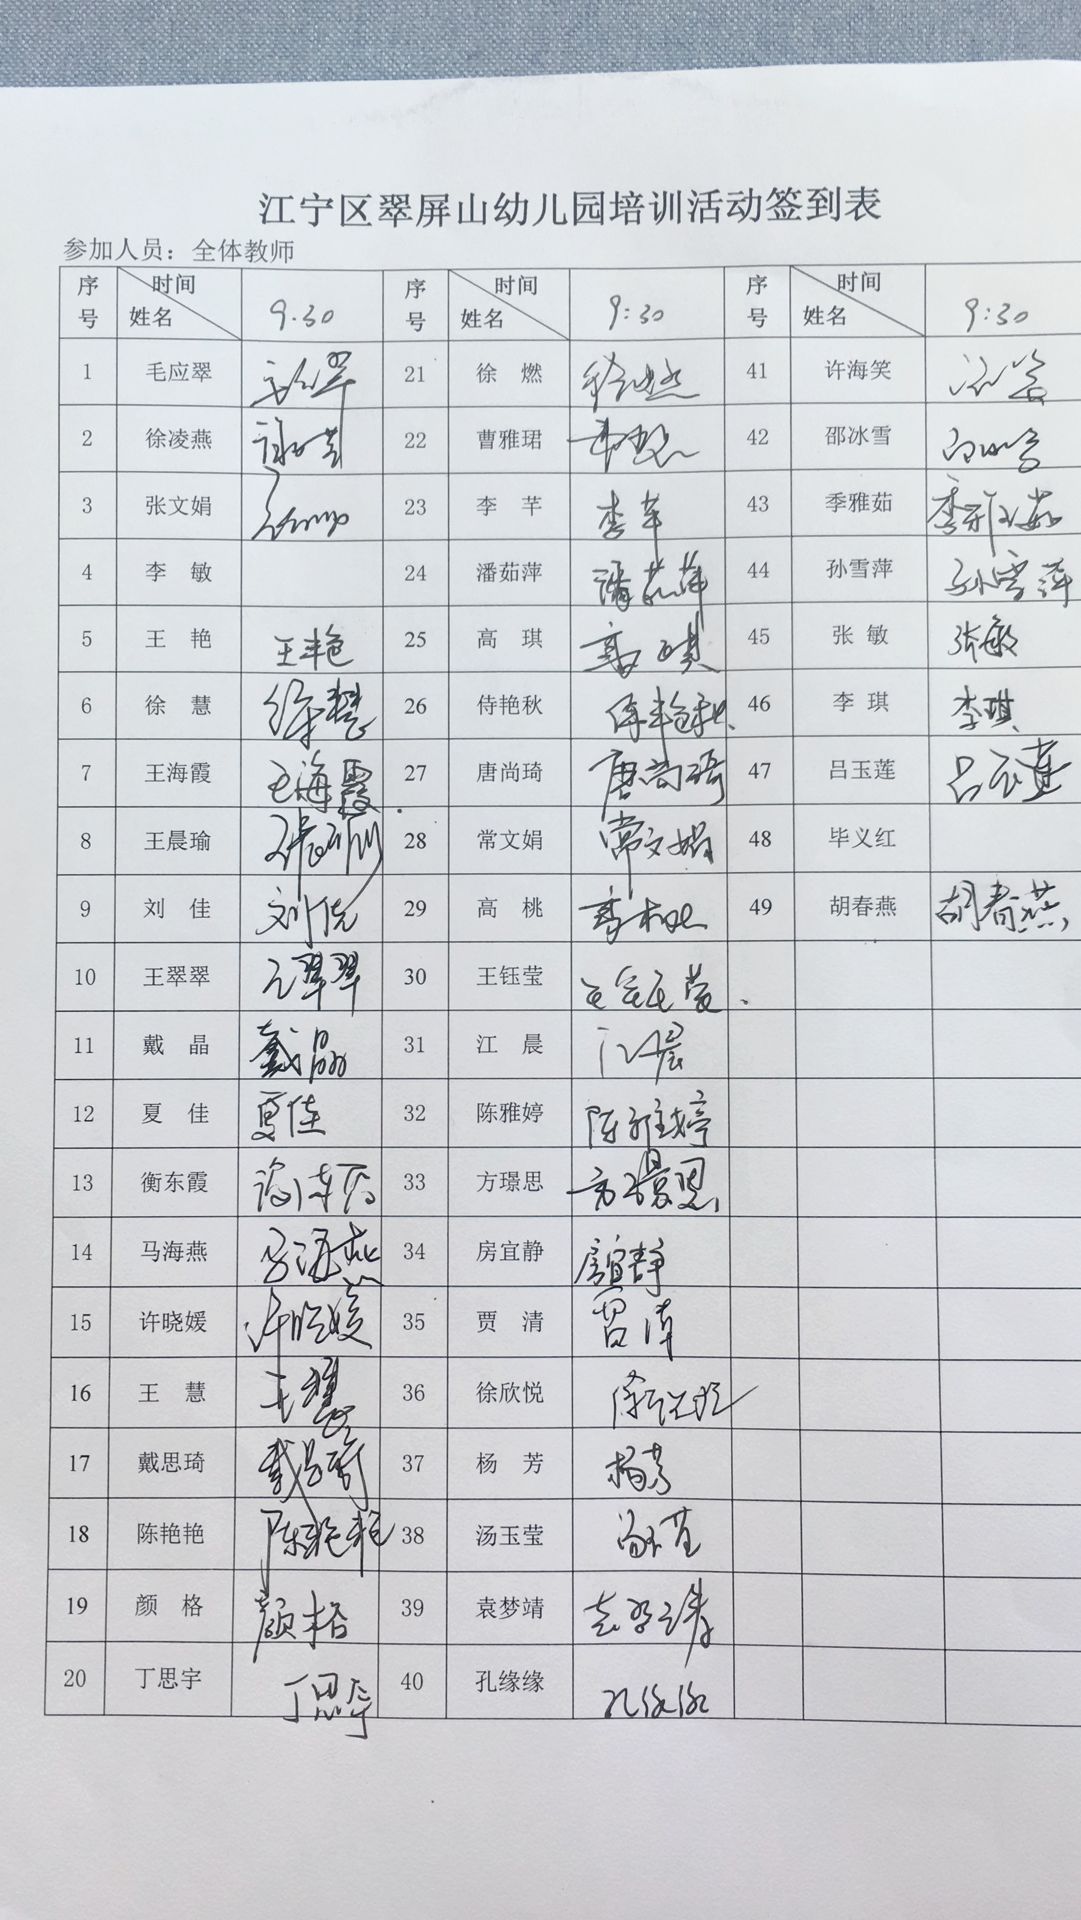 江宁区翠屏山幼儿园培训活动签到表
参加人员：全体教师
序号 时间 姓名 9.30 序号 时间 姓名 9:30 序号 时间 姓名 9:30
1 毛应翠 21 徐 燃 41 许海笑
2 徐凌燕 22 曹雅珺 42 邵冰雪
3 张文娟 23 李 芊 李芊 43 季雅茹 季雅茹
4 李 敏 24 潘茹萍 潘茹萍 44 孙雪萍 孙雪萍
5 王 艳 王艳 25 高 琪 高琪 45 张 敏 张敏
6 徐 慧 徐慧 26 侍艳秋 侍艳秋 46 李 琪 李琪
7 王海霞 王海霞 27 唐尚琦 唐尚琦 47 吕玉莲 吕玉莲
8 王晨瑜 28 常文娟 常文娟 48 毕义红
9 刘 佳 刘佳 29 高 桃 高桃 49 胡春燕 胡春燕
10 王翠翠 王翠翠 30 王钰莹 王钰莹
11 戴 晶 戴晶 31 江 晨 江晨
12 夏 佳 夏佳 32 陈雅婷 陈雅婷
13 衡东霞 33 方璟思 方璟思
14 马海燕 马海燕 34 房宜静 房宜静
15 许晓媛 许晓媛 35 贾 清 贾清
16 王 慧 王慧 36 徐欣悦 徐欣悦
17 戴思琦 戴思琦 37 杨 芳 杨芳
18 陈艳艳 陈艳艳 38 汤玉莹
19 颜 格 颜格 39 袁梦靖
20 丁思宇 丁思宇 40 孔缘缘 孔缘缘